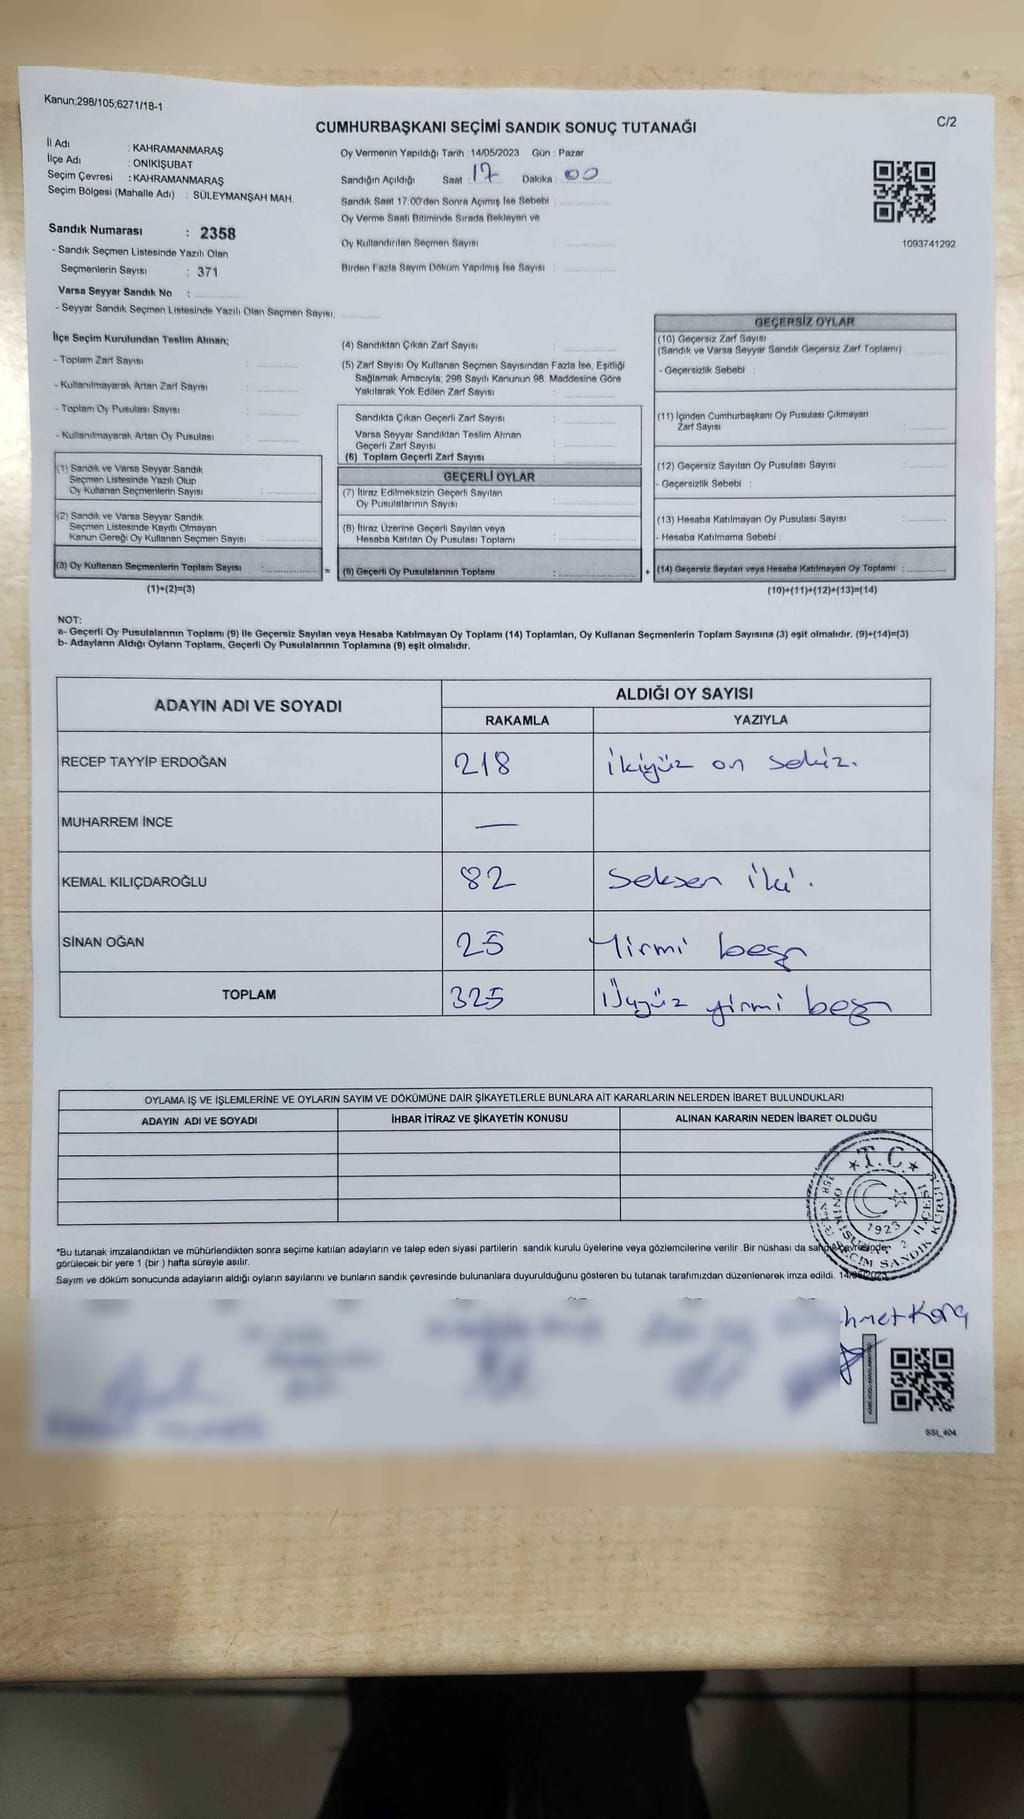 Kanun;298/105;6271/18-1
C/2
CUMHURBAŞKANI SEÇİMİ SANDIK SONUÇ TUTANAĞI
İl Adı : KAHRAMANMARAŞ
İlçe Adı : ONİKİŞUBAT
Seçim Çevresi : KAHRAMANMARAŞ
Seçim Bölgesi (Mahalle Adı) : SÜLEYMANŞAH MAH.
Sandık Numarası : 2358
- Sandık Seçmen Listesinde Yazılı Olan
Seçmenlerin Sayısı : 371
Varsa Seyyar Sandık No :
- Seyyar Sandık Seçmen Listesinde Yazılı Olan Seçmen Sayısı:
Oy Vermenin Yapıldığı Tarih : 14/05/2023 Gün : Pazar
Sandığın Açıldığı Saat : 17 Dakika : 00
Sandık Saat 17:00'den Sonra Açımış İse Sebebi :
Oy Verme Saati Bitiminde Sırada Bekleyen ve
Oy Kullandırılan Seçmen Sayısı :
Birden Fazla Sayım Döküm Yapılmış İse Sayısı :
1093741292
İlçe Seçim Kurulundan Teslim Alınan;
- Toplam Zarf Sayısı :
- Kullanılmayarak Artan Zarf Sayısı :
- Toplam Oy Pusulası Sayısı :
- Kullanılmayarak Artan Oy Pusulası :
(1) Sandık ve Varsa Seyyar Sandık
Seçmen Listesinde Yazılı Olup
Oy Kullanan Seçmenlerin Sayısı :
(2) Sandık ve Varsa Seyyar Sandık
Seçmen Listesinde Kayıtlı Olmayan
Kanun Gereği Oy Kullanan Seçmen Sayısı :
(3) Oy Kullanan Seçmenlerin Toplam Sayısı :
(1)+(2)=(3)
(4) Sandıktan Çıkan Zarf Sayısı :
(5) Zarf Sayısı Oy Kullanan Seçmen Sayısından Fazla İse, Eşitliği
Sağlamak Amacıyla; 298 Sayılı Kanunun 98. Maddesine Göre
Yakılarak Yok Edilen Zarf Sayısı :
Sandıkta Çıkan Geçerli Zarf Sayısı :
Varsa Seyyar Sandıktan Teslim Alınan
Geçerli Zarf Sayısı :
(6) Toplam Geçerli Zarf Sayısı :
GEÇERLİ OYLAR
(7) İtiraz Edilmeksizin Geçerli Sayılan
Oy Pusulalarının Sayısı :
(8) İtiraz Üzerine Geçerli Sayılan veya
Hesaba Katılan Oy Pusulası Toplamı :
= (9) Geçerli Oy Pusulalarının Toplamı :
GEÇERSİZ OYLAR
(10) Geçersiz Zarf Sayısı
(Sandık ve Varsa Seyyar Sandık Geçersiz Zarf Toplamı)
- Geçersizlik Sebebi :
(11) İçinden Cumhurbaşkanı Oy Pusulası Çıkmayan
Zarf Sayısı :
(12) Geçersiz Sayılan Oy Pusulası Sayısı :
- Geçersizlik Sebebi :
(13) Hesaba Katılmayan Oy Pusulası Sayısı :
- Hesaba Katılmama Sebebi :
+ (14) Geçersiz Sayılan veya Hesaba Katılmayan Oy Toplamı :
(10)+(11)+(12)+(13)=(14)
NOT:
a- Geçerli Oy Pusulalarının Toplamı (9) ile Geçersiz Sayılan veya Hesaba Katılmayan Oy Toplamı (14) Toplamları, Oy Kullanan Seçmenlerin Toplam Sayısına (3) eşit olmalıdır. (9)+(14)=(3)
b- Adayların Aldığı Oyların Toplamı, Geçerli Oy Pusulalarının Toplamına (9) eşit olmalıdır.
ADAYIN ADI VE SOYADI ALDIĞI OY SAYISI
RAKAMLA YAZIYLA
RECEP TAYYİP ERDOĞAN 218 İkiyüz on sekiz.
MUHARREM İNCE —
KEMAL KILIÇDAROĞLU 82 Seksen iki.
SİNAN OĞAN 25 Yirmi beş
TOPLAM 325 Üçyüz yirmi beş
OYLAMA İŞ VE İŞLEMLERİNE VE OYLARIN SAYIM VE DÖKÜMÜNE DAİR ŞİKAYETLERLE BUNLARA AİT KARARLARIN NELERDEN İBARET BULUNDUKLARI
ADAYIN ADI VE SOYADI İHBAR İTİRAZ VE ŞİKAYETİN KONUSU ALINAN KARARIN NEDEN İBARET OLDUĞU
T.C.
1923
*Bu tutanak imzalandıktan ve mühürlendikten sonra seçime katılan adayların ve talep eden siyasi partilerin sandık kurulu üyelerine veya gözlemcilerine verilir .Bir nüshası da sandık çevresinde
görülecek bir yere 1 (bir ) hafta süreyle asılır.
Sayım ve döküm sonucunda adayların aldığı oyların sayılarını ve bunların sandık çevresinde bulunanlara duyurulduğunu gösteren bu tutanak tarafımızdan düzenlenerek imza edildi. 14/05/2023
SSL_404